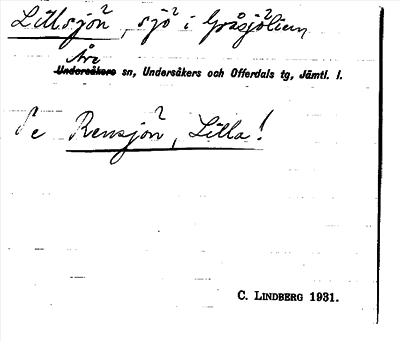 Lillsjön², sjö² i Gråsjölien
Åre
Undersåkers sn, Undersåkers och Offerdals tg, Jämtl. l.
Se Rensjön², Lilla!
C. LINDBERG 1931.